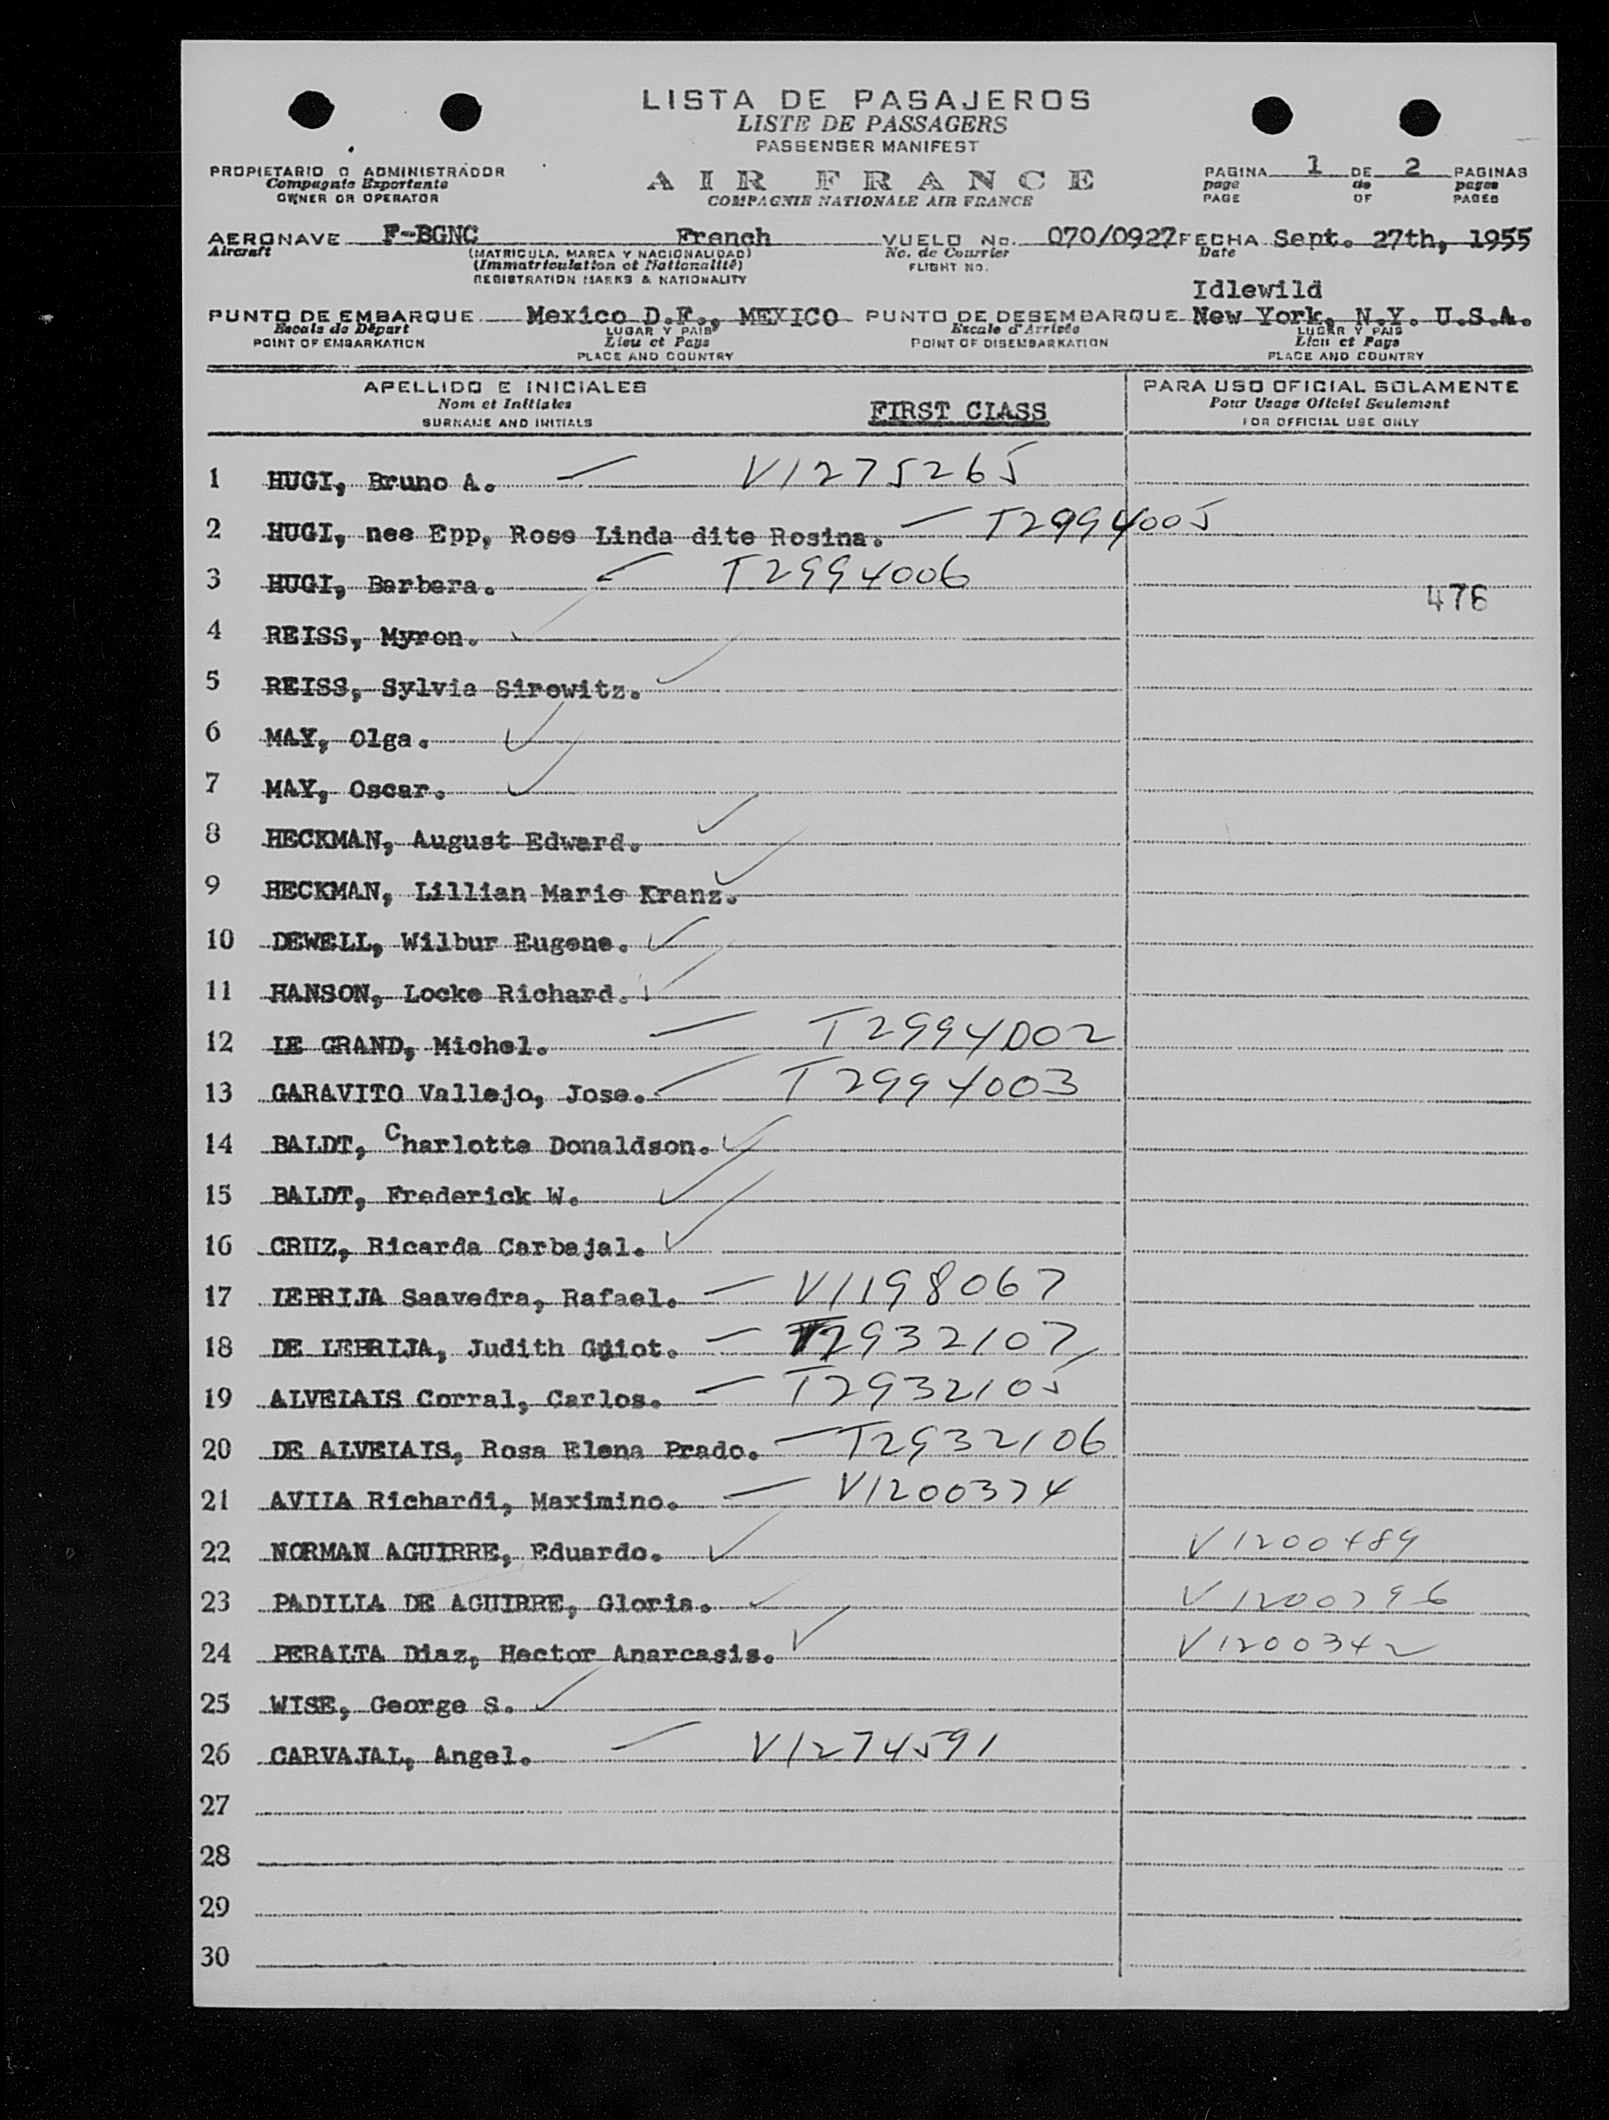 LISTA DE PASAJEROS
LISTE DE PASSAGERS
PASSENGER MANIFEST
PROPIETARIO O ADMINISTRADOR
Compagnie Exportante
OWNER OR OPERATOR
AIR FRANCE
COMPAGNIE NATIONALE AIR FRANCE
PAGINA 1 DE 2 PAGINAS
page de pages
PAGE OF PAGES
AERONAVE F-BGNC French VUELO No. 070/0927 FECHA Sept. 27th, 1955
Aircraft (MATRICULA, MARCA Y NACIONALIDAD) No. de Courrier Date
(Immatriculation et Nationalité) FLIGHT NO.
REGISTRATION MARKS & NATIONALITY
Idlewild
PUNTO DE EMBARQUE Mexico D.F., MEXICO PUNTO DE DESEMBARQUE New York, N.Y. U.S.A.
Escale de Départ LUGAR Y PAIS Escale d'Arrivée LUGAR Y PAIS
POINT OF EMBARKATION Lieu et Pays POINT OF DISEMBARKATION Lieu et Pays
PLACE AND COUNTRY PLACE AND COUNTRY
APELLIDO E INICIALES PARA USO OFICIAL SOLAMENTE
Nom et Initiales FIRST CLASS Pour Usage Officiel Seulement
SURNAME AND INITIALS FOR OFFICIAL USE ONLY
1 HUGI, Bruno A. V1275265
2 HUGI, nee Epp, Rose Linda dite Rosina. T2994005
3 HUGI, Barbara. T2994006
476
4 REISS, Myron.
5 REISS, Sylvia Sirowitz.
6 MAY, Olga.
7 MAY, Oscar.
8 HECKMAN, August Edward.
9 HECKMAN, Lillian Marie Kranz.
10 DEWELL, Wilbur Eugene.
11 HANSON, Locke Richard.
12 LE GRAND, Michel. T2994002
13 GARAVITO Vallejo, Jose. T2994003
14 BALDT, Charlotte Donaldson.
15 BALDT, Frederick W.
16 CRUZ, Ricarda Carbajal.
17 LEBRIJA Saavedra, Rafael. V1198067
18 DE LEBRIJA, Judith Guiot. T2932107
19 ALVELAIS Corral, Carlos. T2932105
20 DE ALVELAIS, Rosa Elena Prado. T2932106
21 AVILA Richardi, Maximino. V1200374
22 NORMAN AGUIRRE, Eduardo. V1200489
23 PADILLA DE AGUIRRE, Gloria. V1200796
24 PERALTA Diaz, Hector Anarcasis. V1200342
25 WISE, George S.
26 CARVAJAL, Angel. V1274591
27
28
29
30